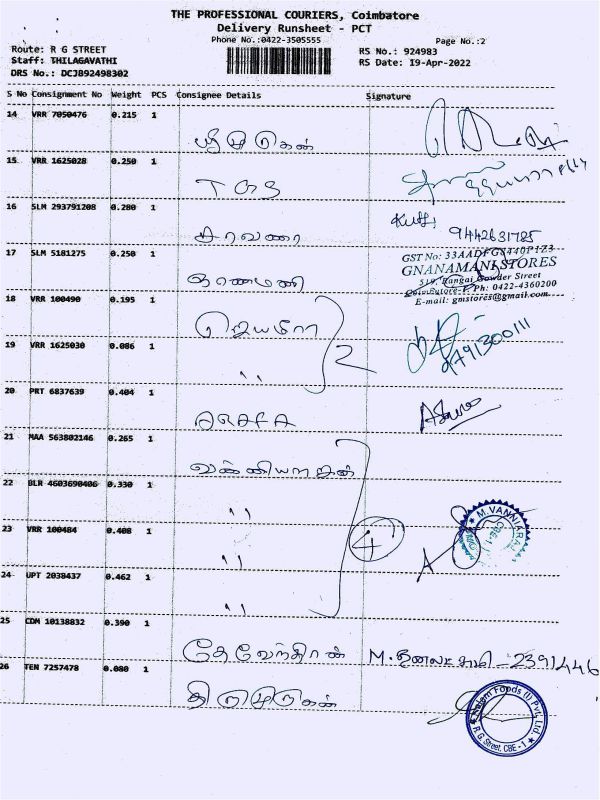 THE PROFESSIONAL COURIERS, Coimbatore
Delivery Runsheet - PCT
Phone No.:0422-3505555
Page No.:2
Route: R G STREET
RS No.: 924983
Staff: THILAGAVATHI
RS Date: 19-Apr-2022
DRS No.: DCJ892498302
S No Consignment No Weight PCS Consignee Details Signature
14 VRR 7050476 0.215 1
ஸ்ரீமுருகன்
15 VRR 1625028 0.250 1
TGS
16 SLM 293791208 0.280 1
சரவணா
9442631785
17 SLM 5181275 0.250 1
ஞானமணி
GST No: 33AADFG8440P1Z3
GNANAMANI STORES
519, Rangai Gowder Street
Coimbatore-1, Ph: 0422-4360200
E-mail: gmstores@gmail.com
18 VRR 100490 0.195 1
ஜெயமீரா
2
19 VRR 1625030 0.086 1
,,
20 PRT 6837639 0.404 1
ARAFA
21 MAA 563802146 0.265 1
வன்னியராஜன்
22 BLR 4603690406 0.330 1
,,
M.VANNIARAJ
CBE-1
23 VRR 100484 0.408 1
,,
4
24 UPT 2038437 0.462 1
,,
25 CDM 10138832 0.390 1
தேவேந்திரன் M. - 2391446
26 TEN 7257478 0.080 1
திருமுருகன்
Foods (I) Pvt. Ltd.
R.G. Street, CBE - 1